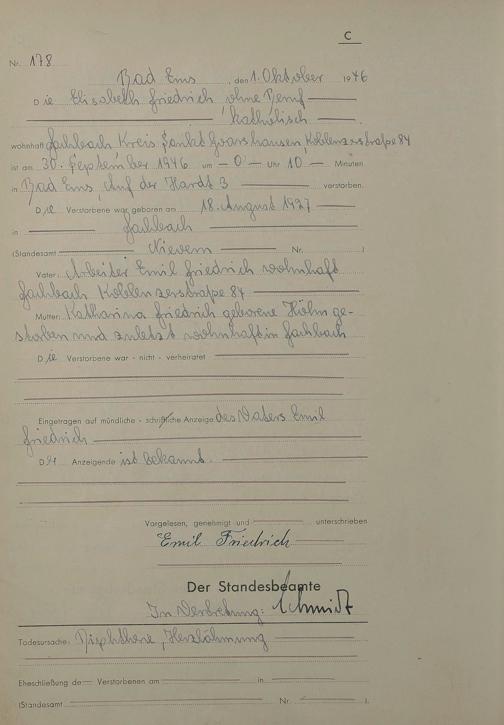 C
Nr. 178
Bad Ems, den 1. Oktober 1946
Die Elisabeth Friedrich ohne Beruf
katholisch
wohnhaft Fachbach Kreis Sankt Goarshausen, Koblenzerstraße 84
ist am 30. September 1946 um 0 Uhr 10 Minuten
in Bad Ems, Auf der Hardt 3 verstorben.
Die Verstorbene war geboren am 18. August 1927
in Fachbach
(Standesamt Nievern Nr. )
Vater: Arbeiter Emil Friedrich wohnhaft
Fachbach Koblenzerstraße 84
Mutter: Katharina Friedrich geborene Höhn ge-
storben und zuletzt wohnhaft in Fachbach
Die Verstorbene war - nicht - verheiratet
Eingetragen auf mündliche - schriftliche Anzeige des Vaters Emil
Friedrich
Der Anzeigende ist bekannt.
Vorgelesen, genehmigt und unterschrieben
Emil Friedrich
Der Standesbeamte
In Vertretung: Schmidt
Todesursache: Diphtherie, Herzlähmung
Eheschließung de Verstorbenen am in
(Standesamt Nr. ).